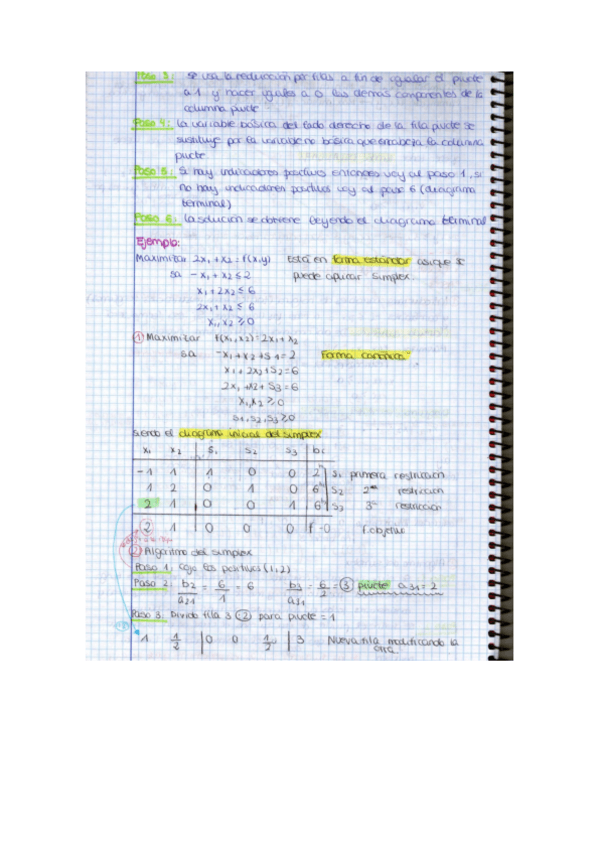 Paso 3: Se usa la reducción por filas a fin de igualar el pivote
a 1 y hacer iguales a 0 las demás componentes de la
columna pivote
Paso 4: La variable básica del lado derecho de la fila pivote se
sustituye por la variable no básica que encabeza la columna
pivote
Paso 5: Si hay indicadores positivos entonces voy al paso 1, si
no hay indicadores positivos voy al paso 6 (diagrama
terminal)
Paso 6: La solución se obtiene leyendo el diagrama terminal
Ejemplo:
Maximizar 2x₁ + x₂ = f(x,y) Está en forma estándar asique se
sa -x₁ + x₂ ≤ 2 puede aplicar simplex
x₁ + 2x₂ ≤ 6
2x₁ + x₂ ≤ 6
x₁, x₂ ≥ 0
① Maximizar f(x₁, x₂) = 2x₁ + x₂
sa -x₁ + x₂ + s₁ = 2 "Forma canónica"
x₁ + 2x₂ + s₂ = 6
2x₁ + x₂ + s₃ = 6
x₁, x₂ ≥ 0
s₁, s₂, s₃ ≥ 0
Siendo el diagrama inicial del simplex
x₁ x₂ s₁ s₂ s₃ bi
-1 1 1 0 0 2 s₁ primera restricción
1 2 0 1 0 6 s₂ 2ª restricción
2 1 0 0 1 6 s₃ 3ª restricción
2 1 0 0 0 f-0 f.objetivo
② Algoritmo del simplex
Paso 1: Cojo los positivos (1, 2)
Paso 2: b₂/a₂₁ = 6/1 = 6 b₃/a₃₁ = 6/2 = ③ pivote a₃₁ = 2
Paso 3: Divido fila 3 ② para pivote = 1
1 1/2 | 0 0 1/2 | 3 Nueva fila modificando la
otra